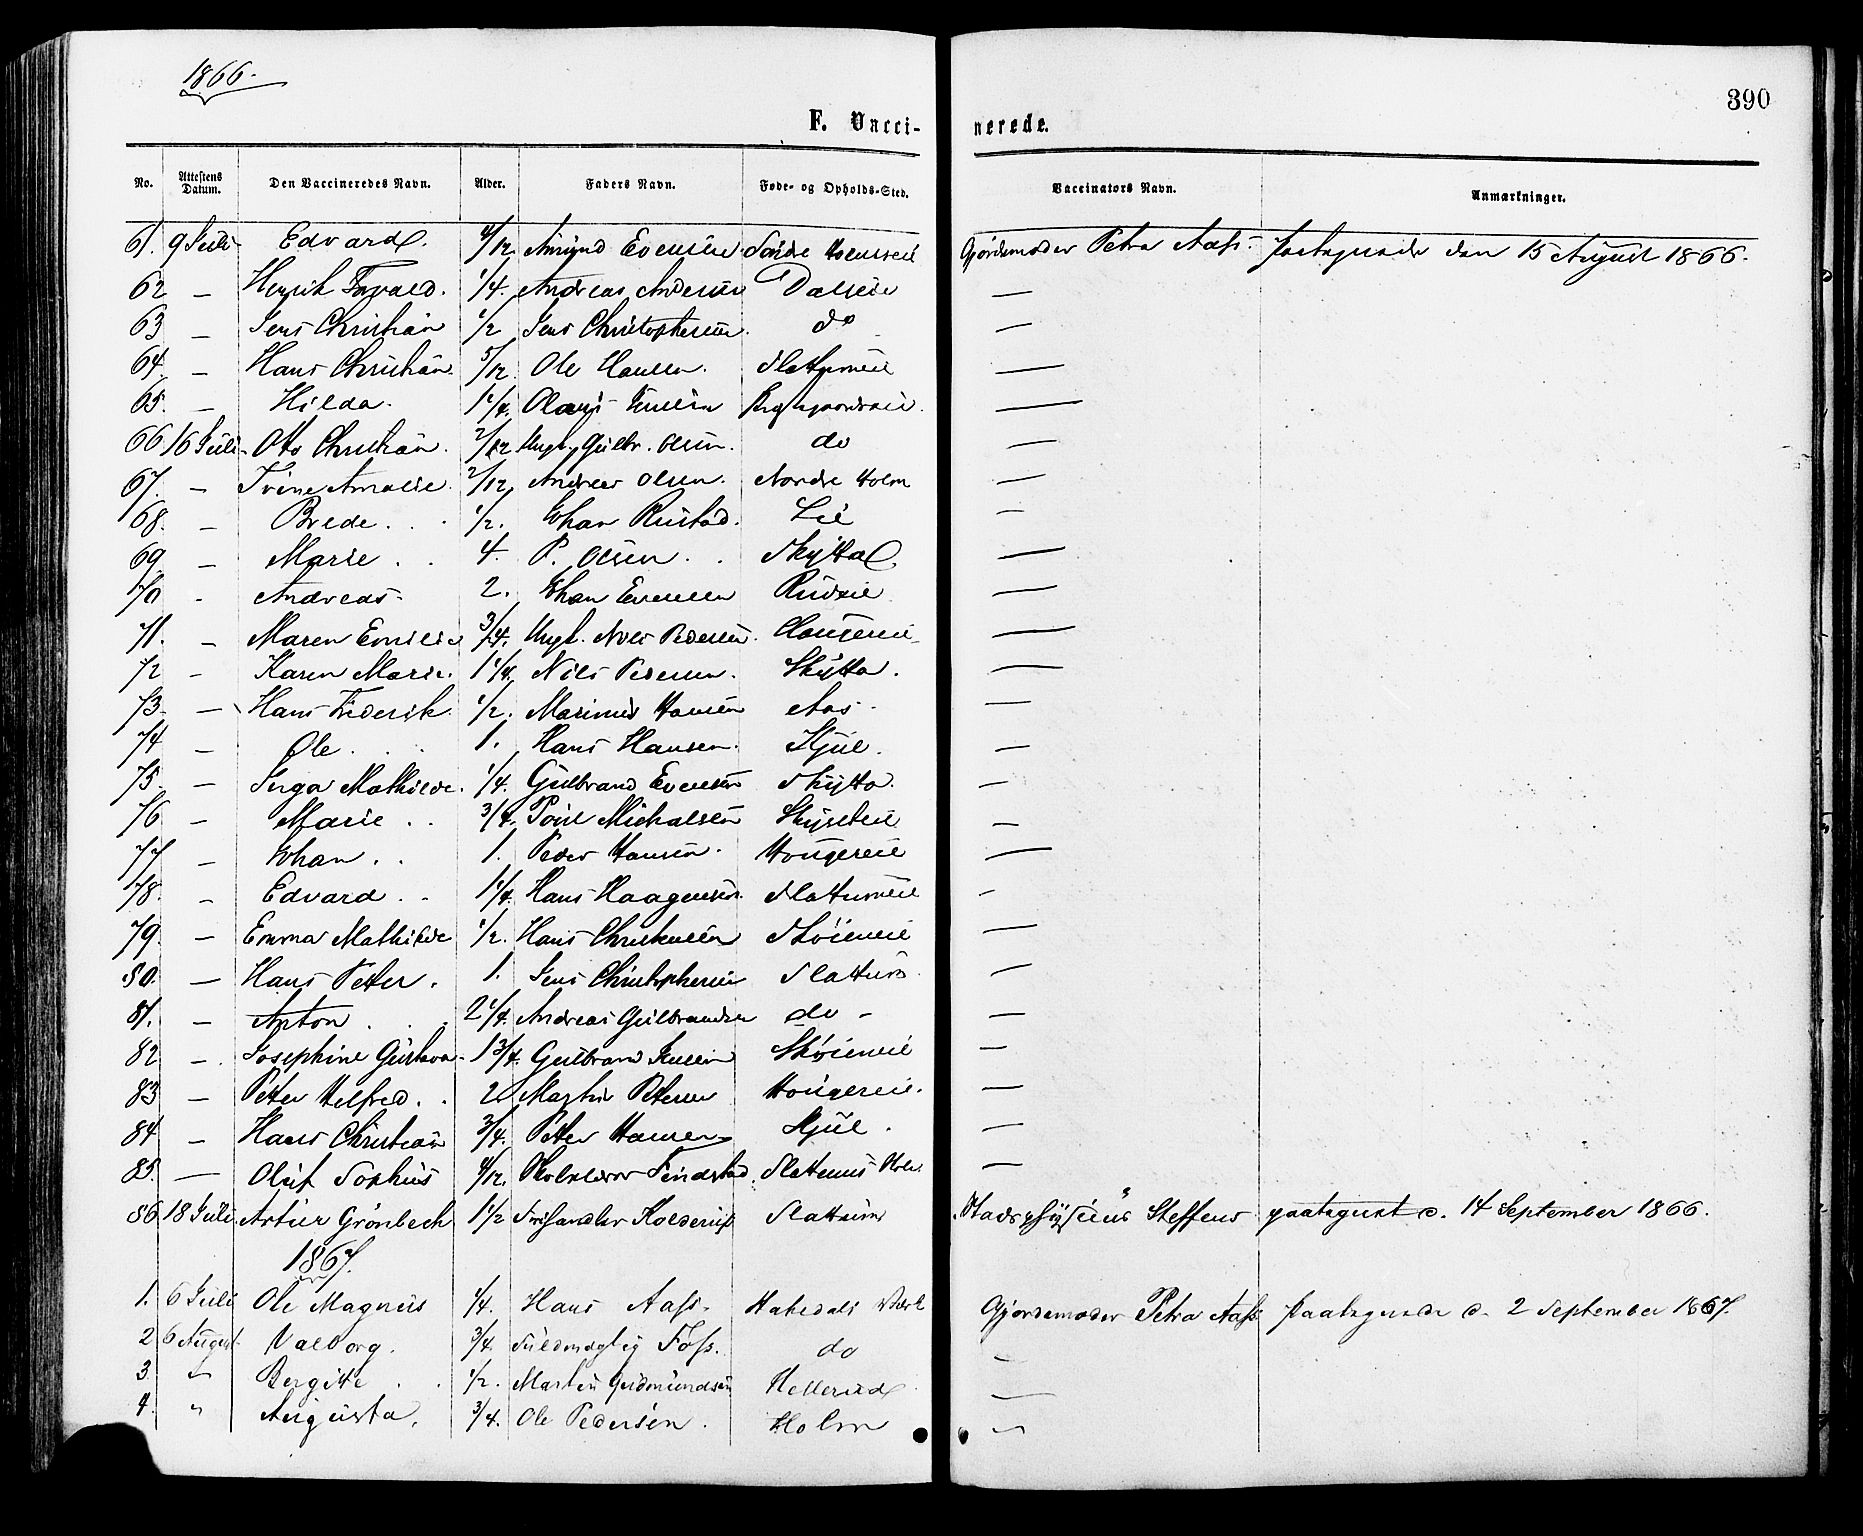 1866.
390
F. Vacci- nerede.
No. Attestens Datum. Den Vaccineredes Navn. Alder. Faders Navn. Føde- og Opholds-Sted. Vaccinators Navn. Anmærkninger.
61. 9 Juli - Edvard. 4/12 Amund Evensen Søndre Gjordemoder Petra Aass. paategnede den 15 August 1866.
62 — Henrik 1/4. Andreas Andersen —
63 — Jens Christian 1/2 Jens Christophersen. do —
64. — Hans Christian 5/12 Ole Hansen. Slattumeie —
65. — Hilda. 1 1/4. —
66 16 Juli - Otto Christian. 2/12 Ungk. Gulbr. Olsen. do —
67. — Trine Amalie. 2/12 Andreas Olsen. Nordre Holm —
68. — Brede . . 1/2. Johan Rustad. Lie —
69. — Marie . . 4. P. Olsen . . Skyttal —
70 - Andreas - 2. Johan Evensen Rudeie —
71. — Maren Emilie 3/4. Ungk. Nils Pedersen. Haugereie —
72 — Karen Marie. 1 1/4. Nils Pedersen. Skytta. —
73. — Hans Frederik 1/2. Marinus Hansen Aas. —
74 — Ole . . . 1. Hans Hansen. Kjul. —
75. — Inga Mathilde. 1/4. Gulbrand Evensen Skytta. —
76. — Marie . . 3/4. Poul Michalsen —
77 — Johan . . 1. Peder Hansen. Hougereie —
78. — Edvard . . 1 1/4. Hans Haagensen. Slattumeie —
79. — Emma Mathilde 1/2. Hans Christensen Skøieneie —
80. — Hans Peter. 1. Jens Christophersen Slattum —
81. — Anton . . 2 1/4. Andreas Gulbrandsen do - —
82 — Josephine Gustava - 1 3/4. Gulbrand Jensen Skøieneie —
83 — Peter Helfred . . 2 Martin Petersen Hougereie. —
84. — Hans Christian 3/4. Peter Hansen Kjul. —
85. — Oluf Sophus 4/12. Slattums Holm —
86. 18 Juli. Artur Grønbech 1 1/2 Holderup Slattum Stadsphysicus Steffens paategnet d. 14 September 1866.
1867.
1. 6 Juli Ole Magnus 1/4. Hans Aass. Hakedals Værk Gjordemoder Petra Aass paategnede d. 2 September 1867.
2 6 August Valborg. 3/4. Fuldmægtig Foss. do —
3 " Bergitte . . 1/2. Martin Gudmundsen Hellerud —
4. " Augusta. 3/4. Ole Pedersen. Holm —